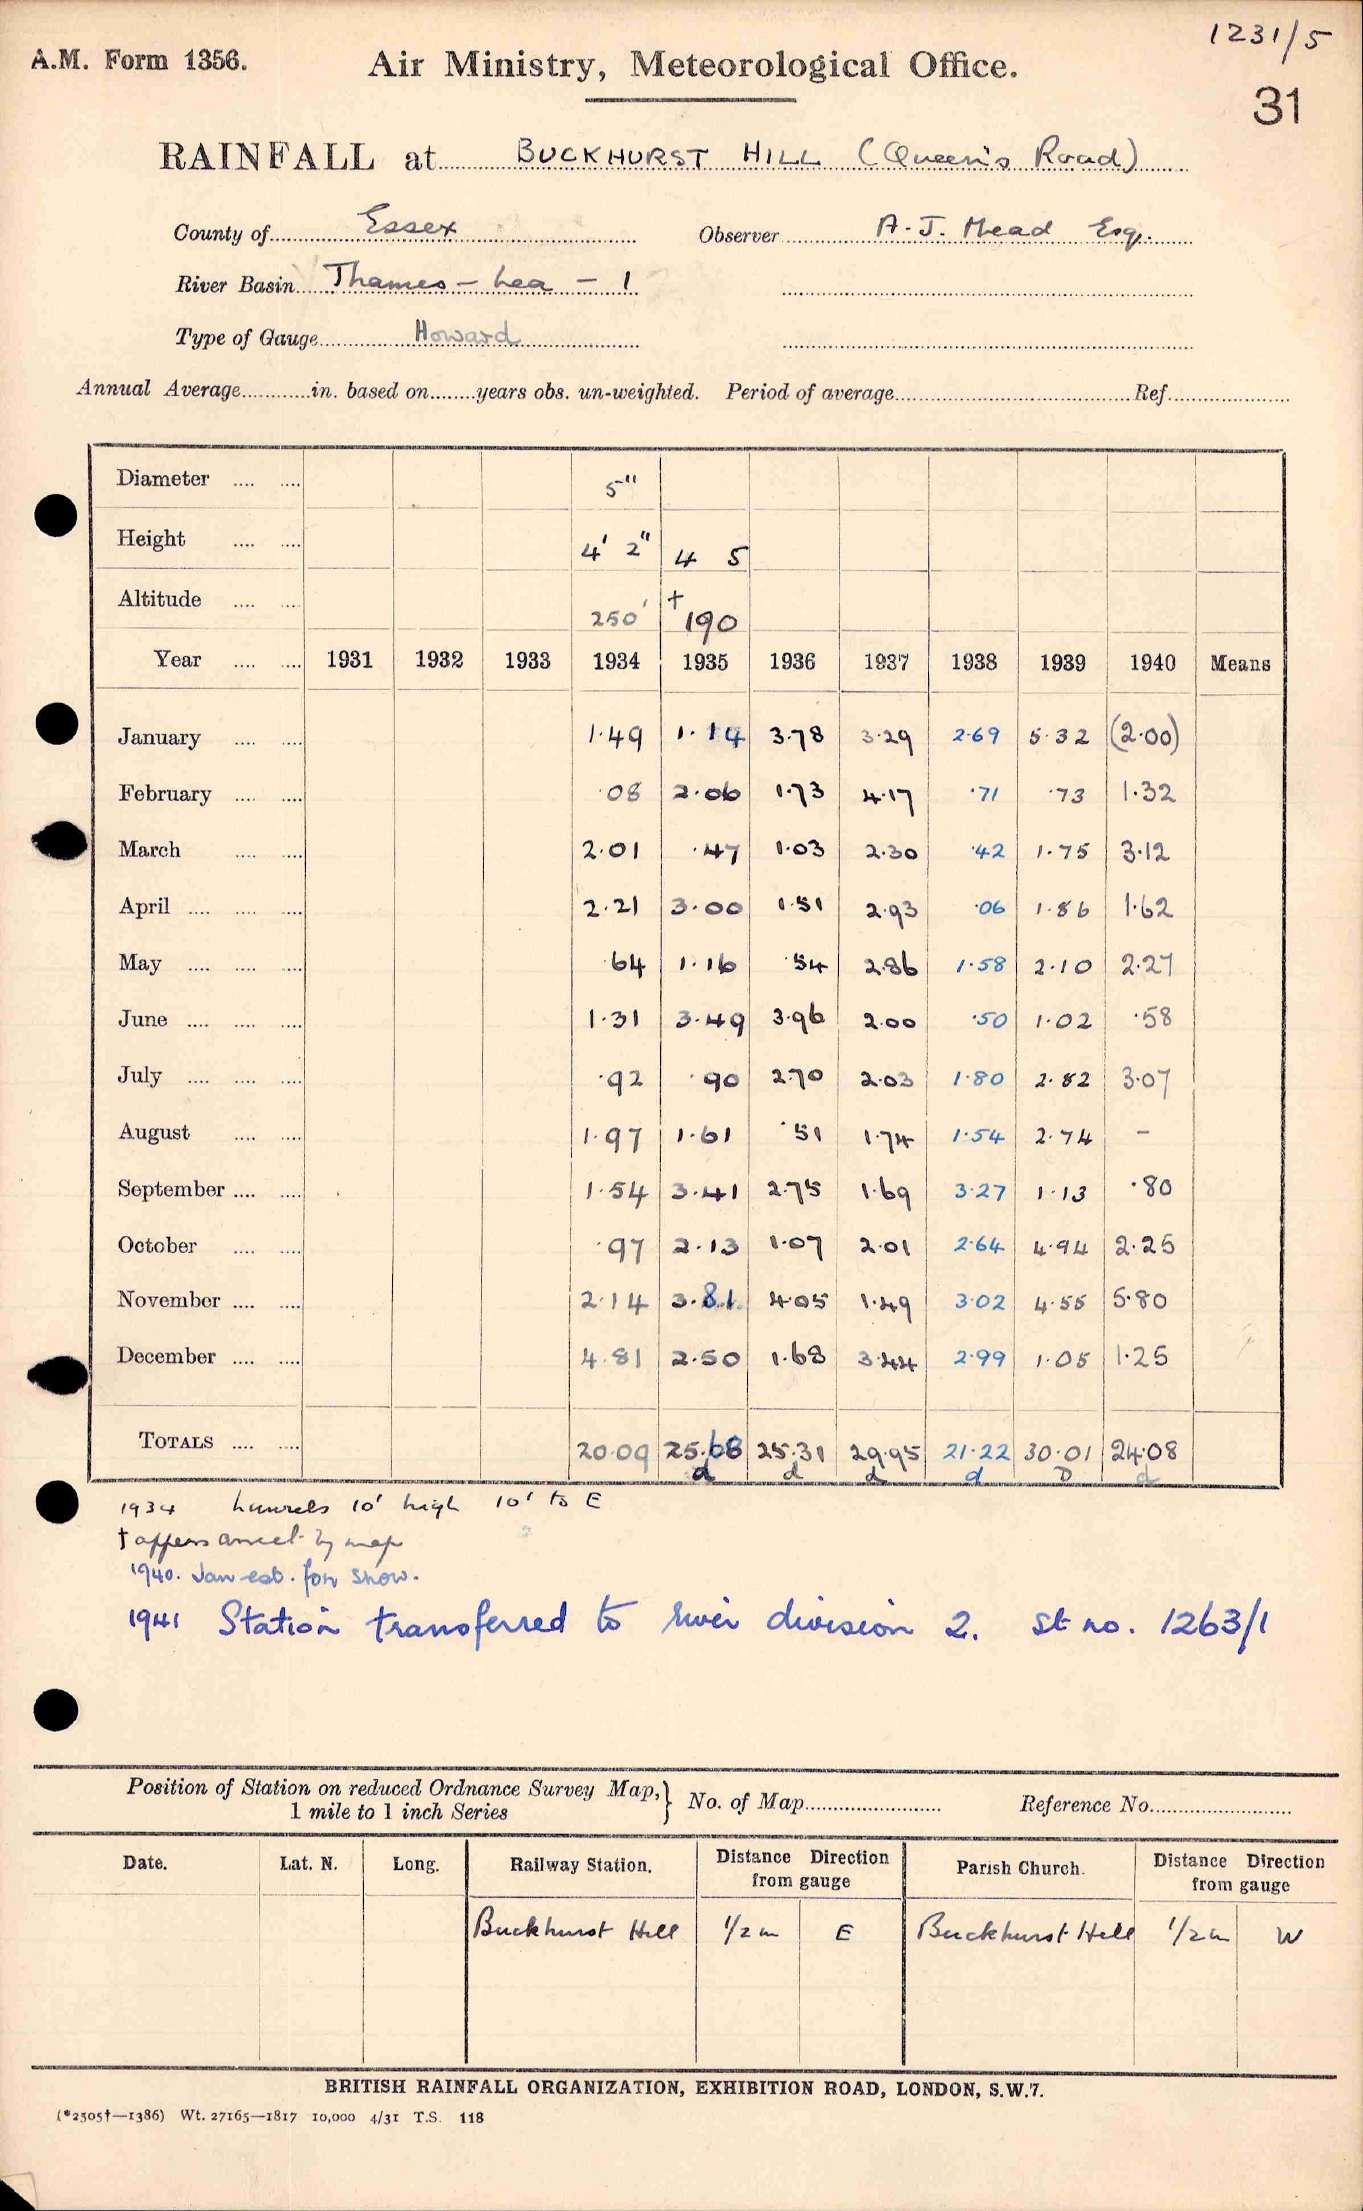 1231/5
A.M. Form 1356. Air Ministry, Meteorological Office.
31
RAINFALL at BUCKHURST HILL (Queen's Road)
County of Essex Observer A. J. Mead Esq.
River Basin Thames - Lea - 1
Type of Gauge Howard
Annual Average in. based on years obs. un-weighted. Period of average Ref.
Diameter 5"
Height 4' 2" 4 5
Altitude 250' †190
Year 1931 1932 1933 1934 1935 1936 1937 1938 1939 1940 Means
January 1.49 1.14 3.78 3.29 2.69 5.32 (2.00)
February .08 2.06 1.73 4.17 .71 .73 1.32
March 2.01 .47 1.03 2.30 .42 1.75 3.12
April 2.21 3.00 1.51 2.93 .06 1.86 1.62
May .64 1.16 .54 2.86 1.58 2.10 2.27
June 1.31 3.49 3.96 2.00 .50 1.02 .58
July .92 .90 2.70 2.03 1.80 2.82 3.07
August 1.97 1.61 .51 1.74 1.54 2.74 -
September 1.54 3.41 2.75 1.69 3.27 1.13 .80
October .97 2.13 1.07 2.01 2.64 4.94 2.25
November 2.14 3.81 4.05 1.49 3.02 4.55 5.80
December 4.81 2.50 1.68 3.44 2.99 1.05 1.25
TOTALS 20.09 25.68 25.31 29.95 21.22 30.01 24.08
d d d d D d
1934 Laurels 10' high 10' to E
† by map
1940. Jan est. for snow.
1941 Station transferred to river division 2. St no. 1263/1
Position of Station on reduced Ordnance Survey Map, } No. of Map Reference No.
1 mile to 1 inch Series
Date. Lat. N. Long. Railway Station. Distance Direction from gauge Parish Church. Distance Direction from gauge
Buckhurst Hill 1/2 m E Buckhurst Hill 1/2 m W
BRITISH RAINFALL ORGANIZATION, EXHIBITION ROAD, LONDON, S.W.7.
(*2505†—1386) Wt. 27165—1817 10,000 4/31 T.S. 118